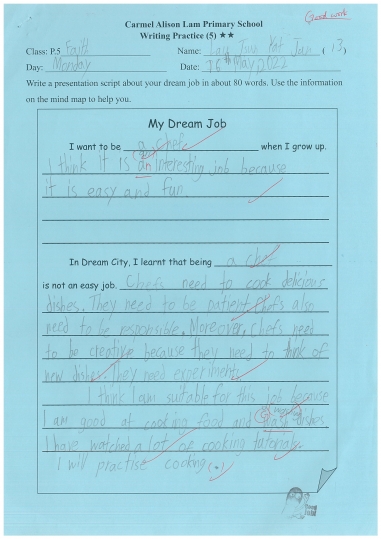 Good work
Carmel Alison Lam Primary School
Writing Practice (5) ★★
Class: P.5 Faith Name: Jun Kat John (13)
Day: Monday Date: 16th May 2022
Write a presentation script about your dream job in about 80 words. Use the information
on the mind map to help you.
My Dream Job
I want to be a chef when I grow up.
I think it is an interesting job because
it is easy and fun.
In Dream City, I learnt that being a chef
is not an easy job. Chefs need to cook delicious
dishes. They need to be patient. Chefs also
need to be responsible. Moreover, Chefs need
to be creative because they need to think of
new dishes. They need experiment.
I think I am suitable for this job because
I am good at cooking food and wash dishes
I have watched a lot of cooking tutorials.
I will practise cooking (.)